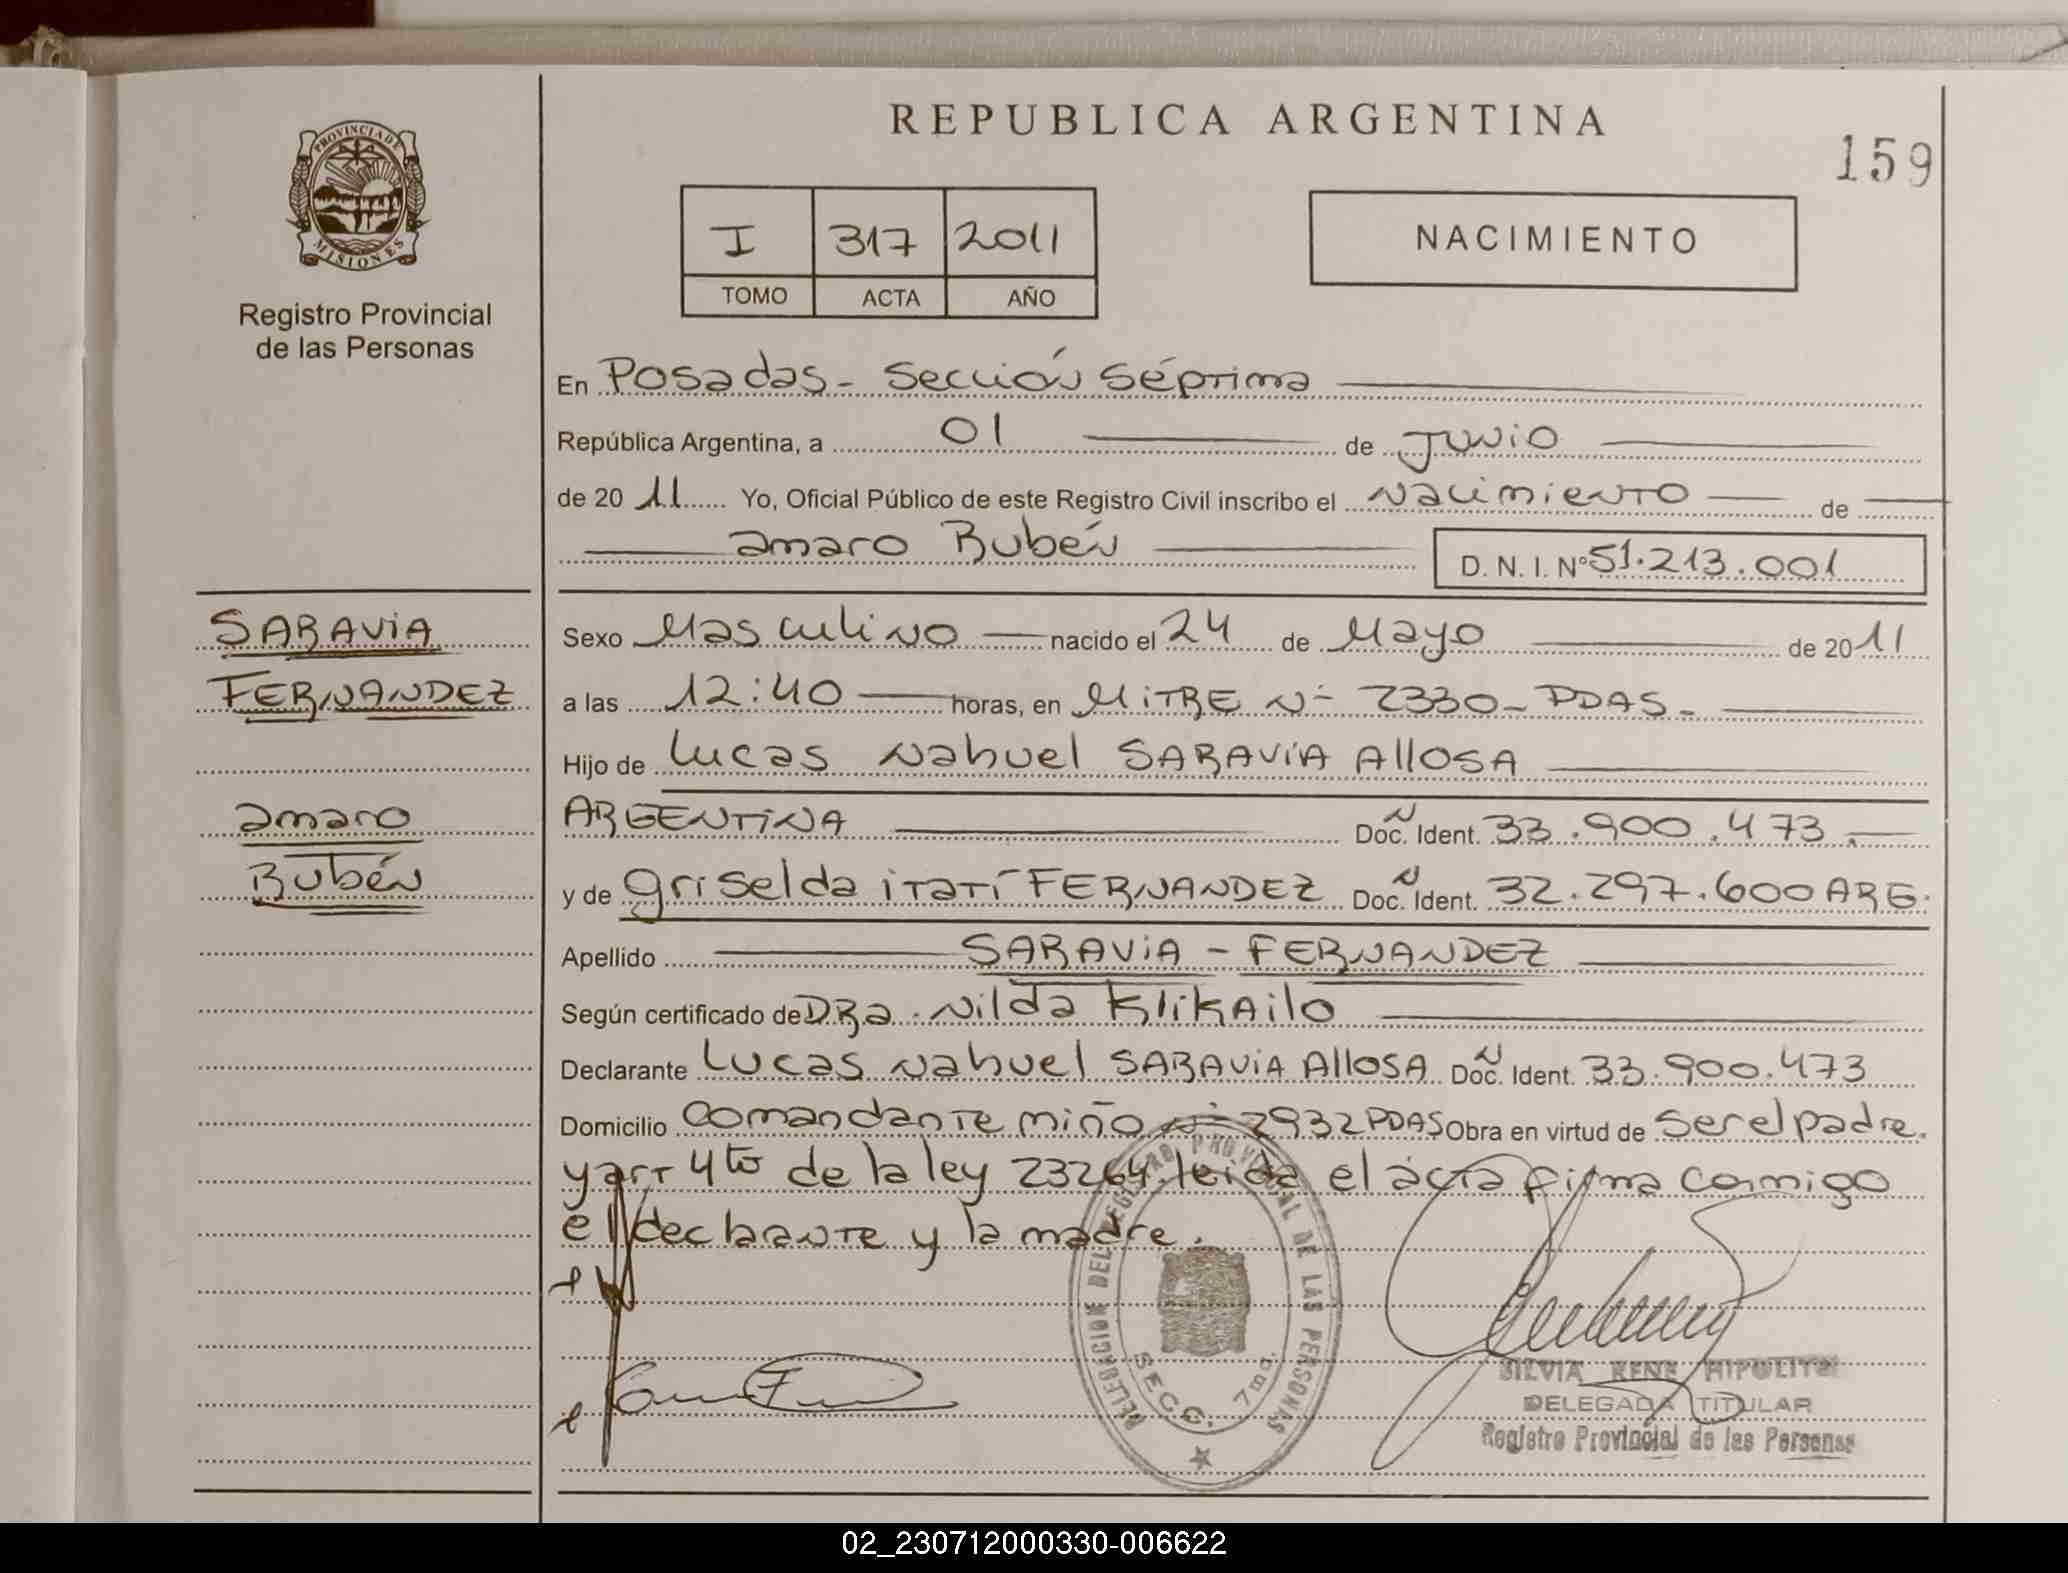 REPUBLICA ARGENTINA
159
PROVINCIA DE
MISIONES
Registro Provincial
de las Personas
I 317 2011
TOMO ACTA AÑO
NACIMIENTO
En Posadas - Sección Séptima
República Argentina, a 01 de Junio
de 20 11 Yo, Oficial Público de este Registro Civil inscribo el Nacimiento de
amaro Rubén D. N. I. Nº 51.213.001
SARAVIA
FERNANDEZ
amaro
Rubén
Sexo Masculino nacido el 24 de Mayo de 20 11
a las 12:40 horas, en MITRE Nº 2330 - PDAS -
Hijo de Lucas Nahuel SARAVIA AllOSA
ARGENTINA Doc. Ident. 33.900.473.-
y de Griselda itatí FERNANDEZ Doc. Ident. 32.297.600 ARG.
Apellido SARAVIA - FERNANDEZ
Según certificado de DRa. Nilda KliKAilo
Declarante Lucas Nahuel SARAVIA AllOSA Doc. Ident. 33.900.473
Domicilio Comandante miño Nº 2932 PDAS Obra en virtud de ser el padre.
y art 4to de la ley 23264. leida el acta firma conmigo
el declarante y la madre.
DELEGACION DEL REGISTRO PROVINCIAL DE LAS PERSONAS
SECC. 7ma.
SILVIA RENE HIPOLITO
DELEGADA TITULAR
Registro Provincial de las Personas
02_230712000330-006622